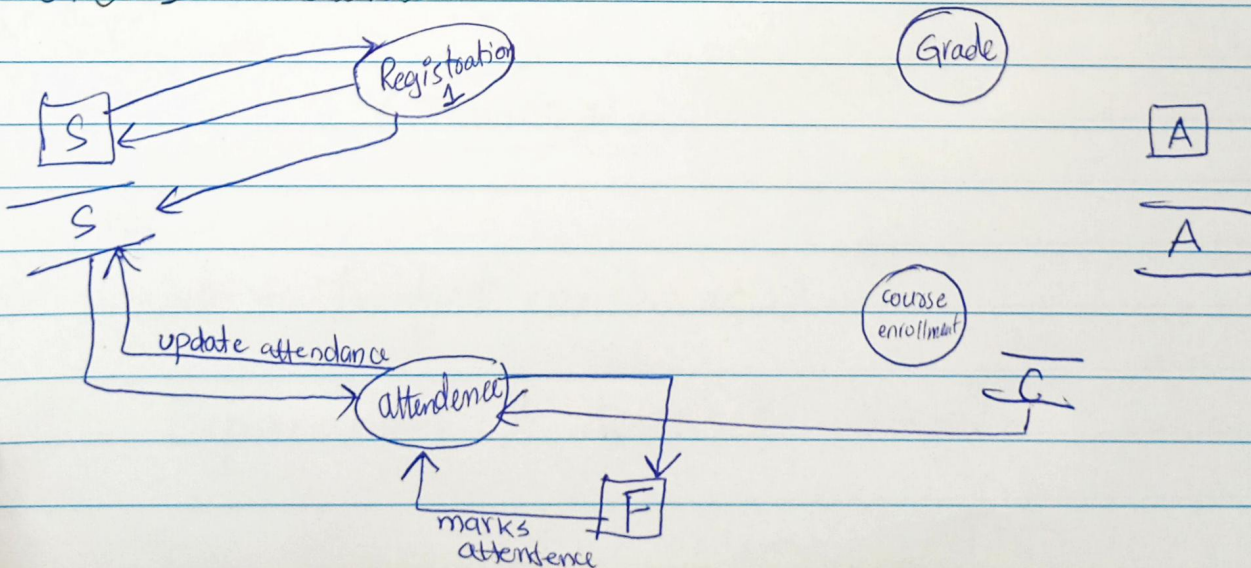 Registration
1
Grade
S
A
S
A
course
enrollment
update attendance
C
attendence
F
marks
attendence